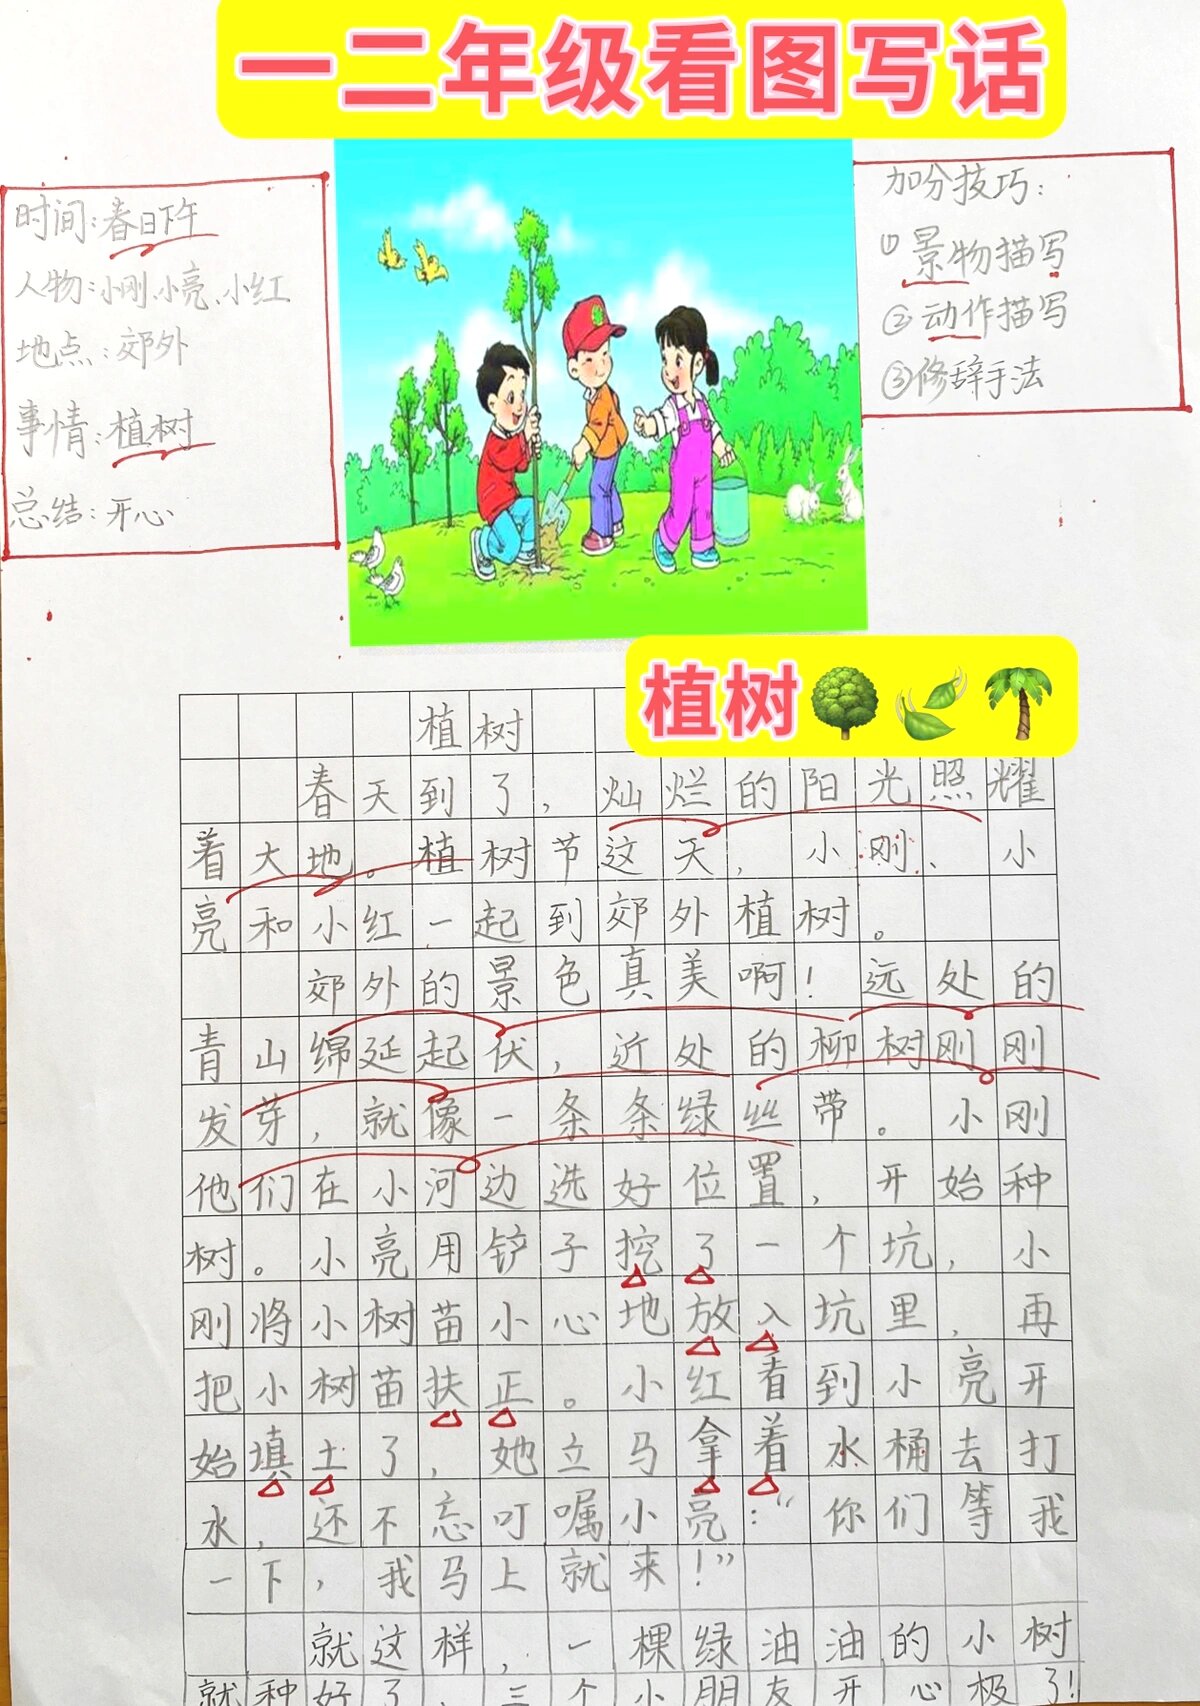 一二年级看图写话
时间:春日下午
人物:小刚、小亮、小红
地点:郊外
事情:植树
总结:开心
加分技巧:
①景物描写
②动作描写
③修辞手法
植树
植树
春天到了,灿烂的阳光照耀
着大地。植树节这天,小刚、小
亮和小红一起到郊外植树。
郊外的景色真美啊!远处的
青山绵延起伏,近处的柳树刚刚
发芽,就像一条条绿丝带。小刚
他们在小河边选好位置,开始种
树。小亮用铲子挖了一个坑,小
刚将小树苗小心地放入坑里,再
把小树苗扶正。小红看到小亮开
始填土了,她立马拿着水桶去打
水,还不忘叮嘱小亮:“你们等我
一下,我马上就来!”
就这样,一棵绿油油的小树
就种好了,三个小朋友开心极了!